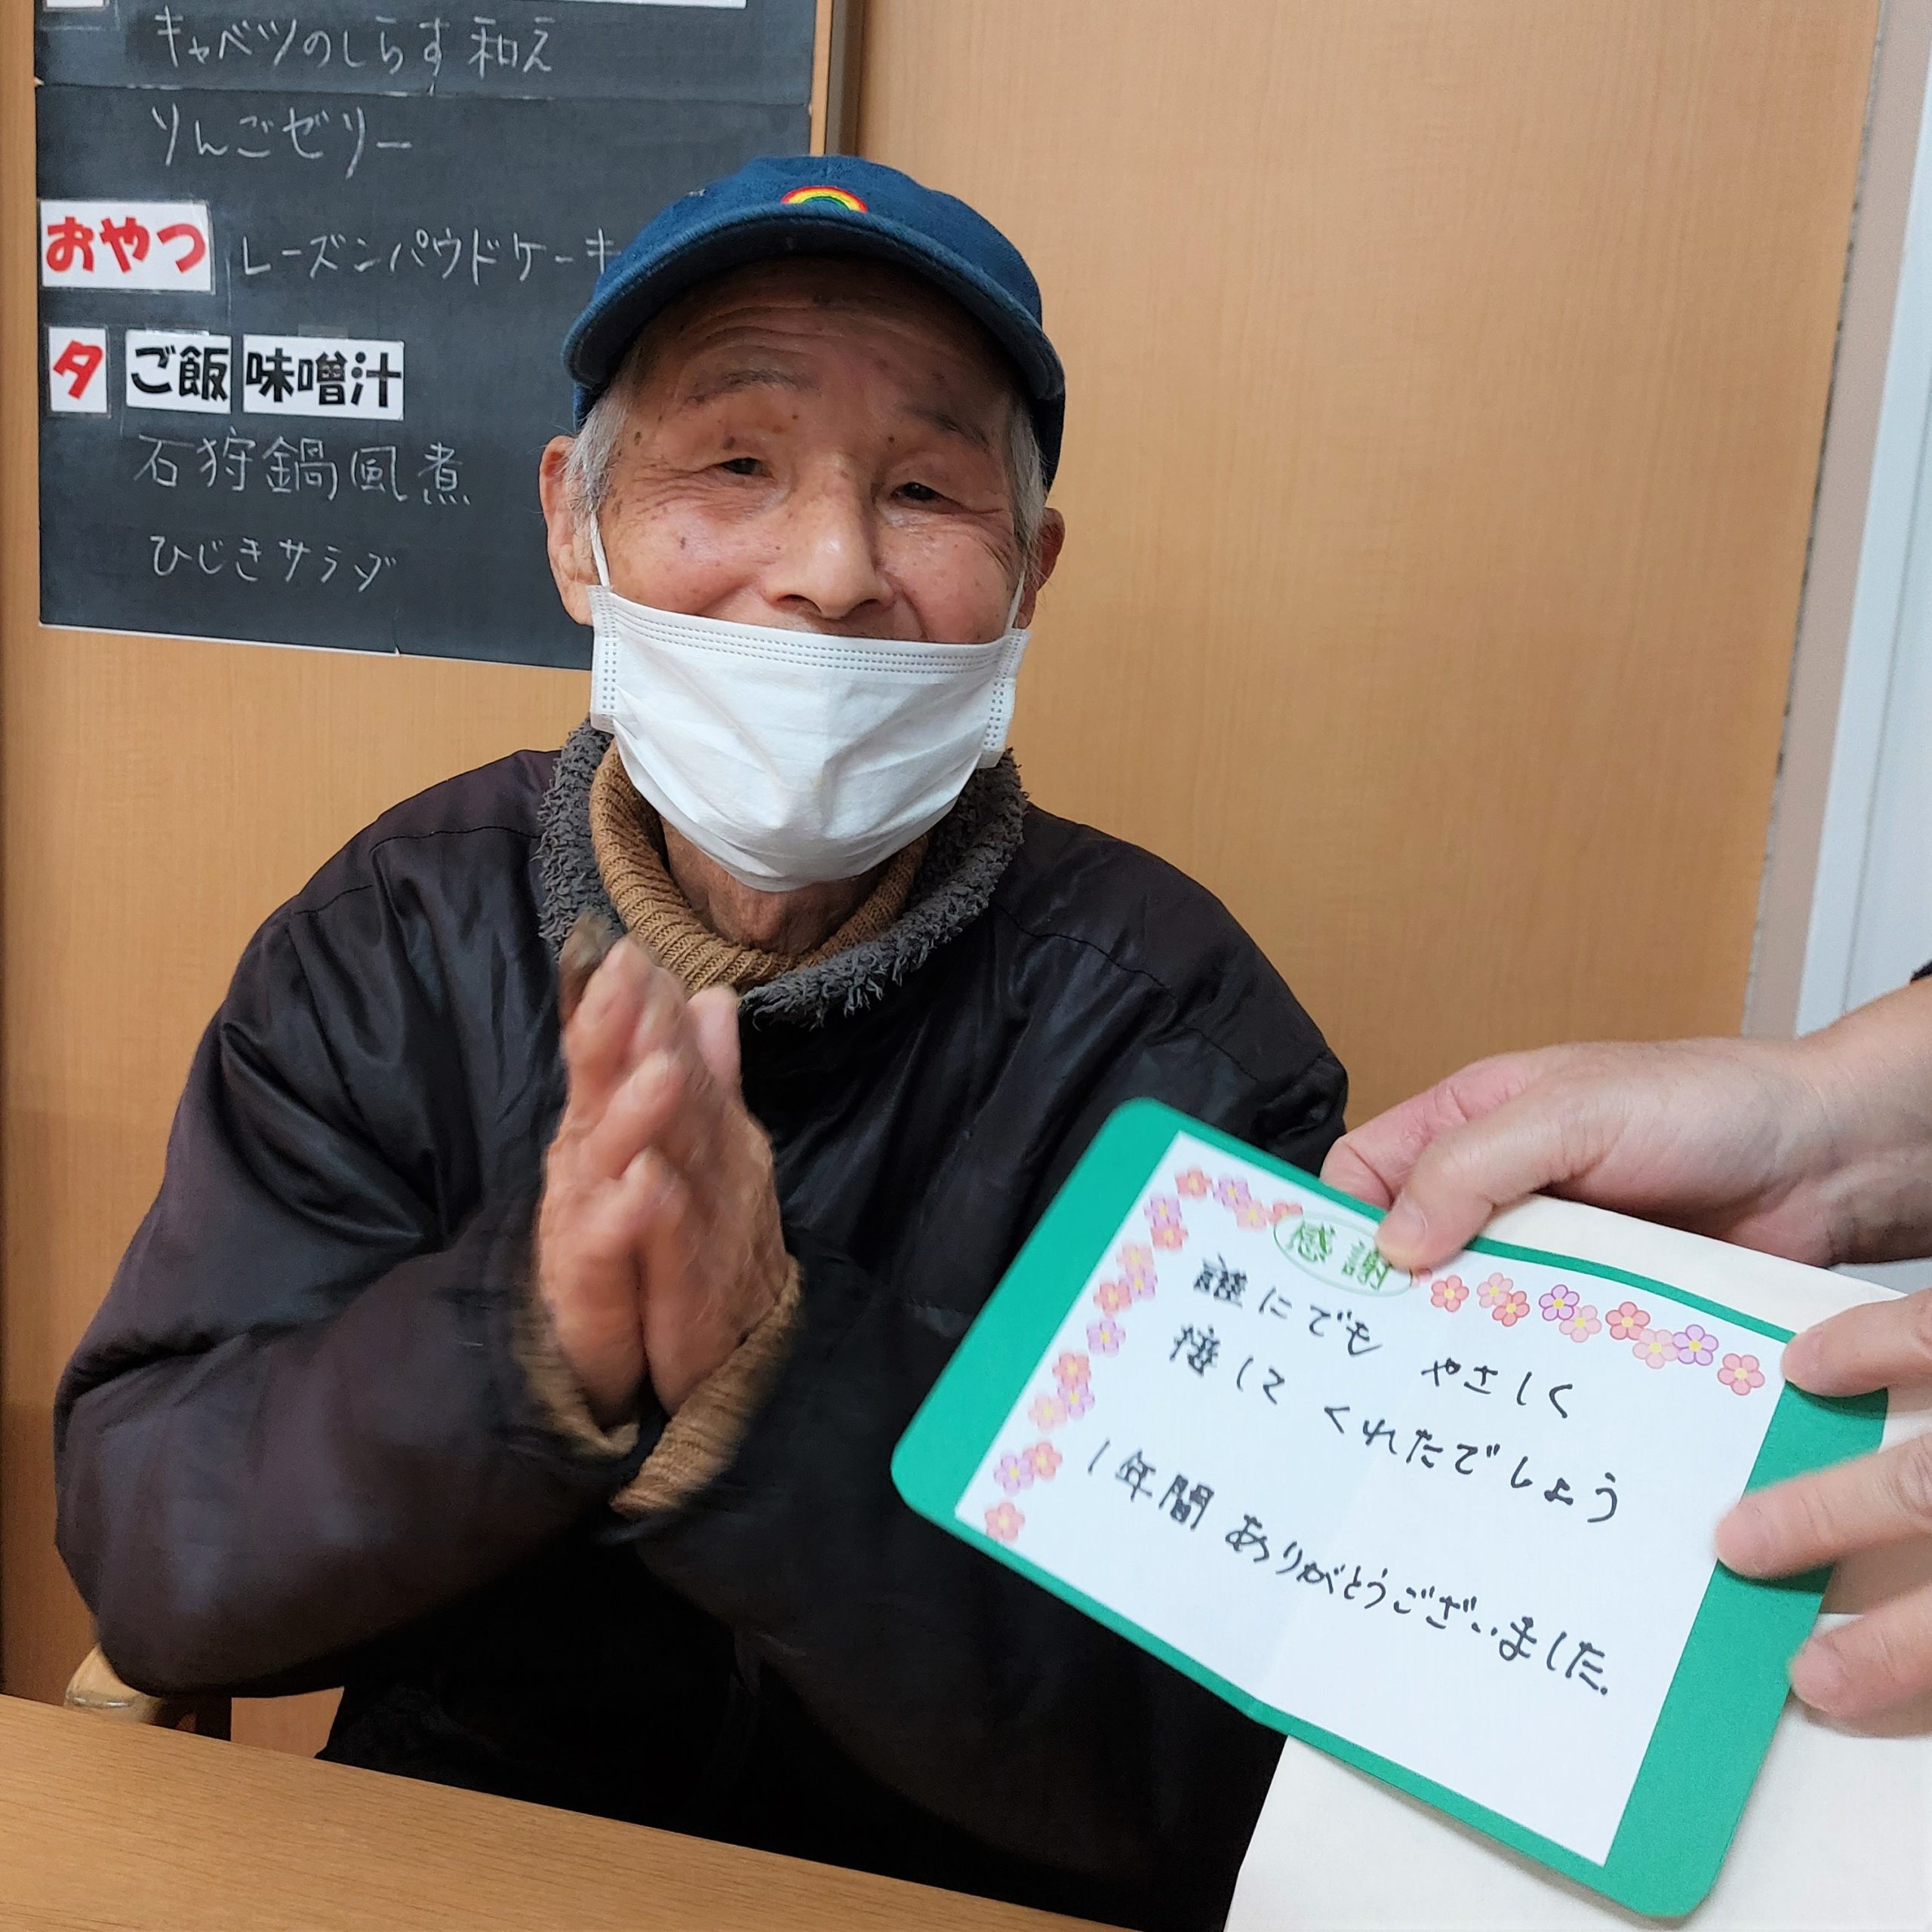 キャベツのしらす和え
りんごゼリー
おやつ レーズンパウドケーキ
夕 ご飯 味噌汁
石狩鍋風煮
ひじきサラダ
感謝
誰にでも やさしく
接して くれたでしょう
1年間 ありがとうございました.